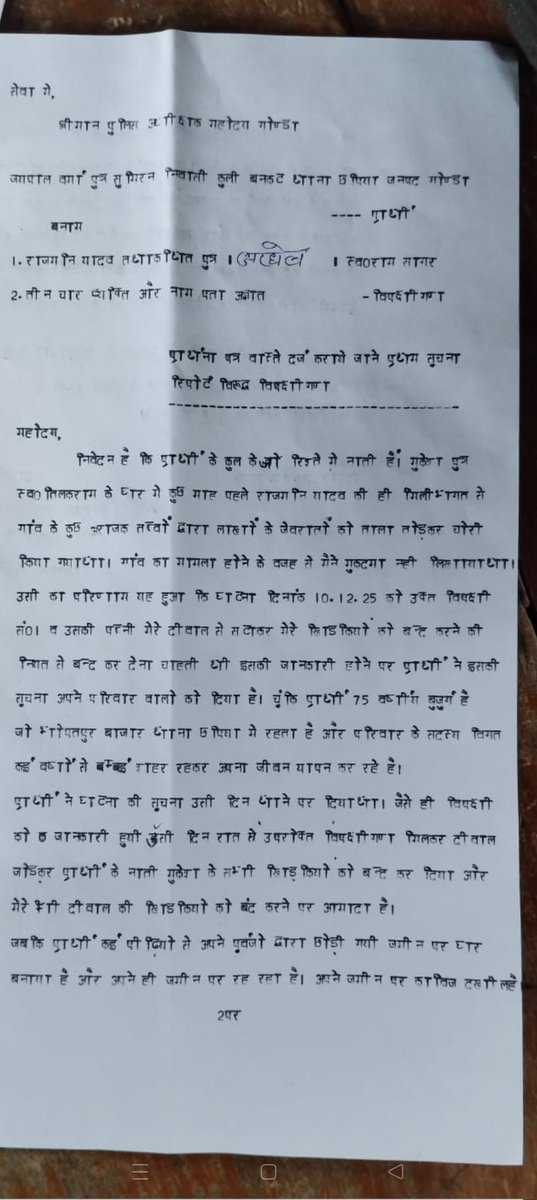 सेवा मे,
श्रीमान पुलिस अधीक्षक महोदय गोण्डा
जयपाल वर्मा पुत्र सुमिरन निवासी कुली बनकट थाना छपिया जनपद गोण्डा
---- प्रार्थी
बनाम
1. राजमनि यादव तथाकथित पुत्र । । स्व0राम सागर
2. तीन चार व्यक्ति और नाम पता अज्ञात - विपक्षीगण
प्रार्थना पत्र वास्ते दर्ज कराये जाने प्रथम सूचना
रिपोर्ट विरूद्ध विपक्षीगण
महोदय,
निवेदन है कि प्रार्थी के कुल के जो रिश्ते मे नाती है। मुकेश पुत्र
स्व0 तिलकराम के घर मे कुछ माह पहले राजमनि यादव की ही मिलीभगत से
गांव के कुछ अराजक तत्वों द्वारा लाखों के जेवरातों को ताला तोड़कर चोरी
किया गयाथा। गांव का मामला होने के वजह से मैने मुकदमा नही लिखायाथा।
उसी का परिणाम यह हुआ कि घटना दिनांक 10.12.25 को उक्त विपक्षी
सं01 व उसकी पत्नी मेरे दीवाल से सटाकर मेरे खिड़कियों को बन्द करने की
नियत से बन्द कर देना चाहती थी इसकी जानकारी होने पर प्रार्थी ने इसकी
सूचना अपने परिवार वालो को दिया है। चूंकि प्रार्थी 75 वर्षीय बुजुर्ग है
जो भोपतपुर बाजार थाना छपिया मे रहता है और परिवार के सदस्य विगत
कई वर्षों से बम्बई शहर रहकर अपना जीवन यापन कर रहे है।
प्रार्थी ने घटना की सूचना उसी दिन थाने पर दियाथा। जैसे ही विपक्षी
को जानकारी हुयी उसी दिन रात से उपरोक्त विपक्षीगण मिलकर दीवाल
जोड़कर प्रार्थी के नाती मुकेश के सभी खिड़कियों को बन्द कर दिया और
मेरे भी दीवाल की खिड़कियों को बंद करने पर आमादा है।
जबकि प्रार्थी कई पीढ़ियो से अपने पूर्वजो द्वारा छोड़ी गयी जमीन पर घर
बनाया है और अपने ही जमीन पर रह रहा है। अपने जमीन पर काबिज दखील है
2पर